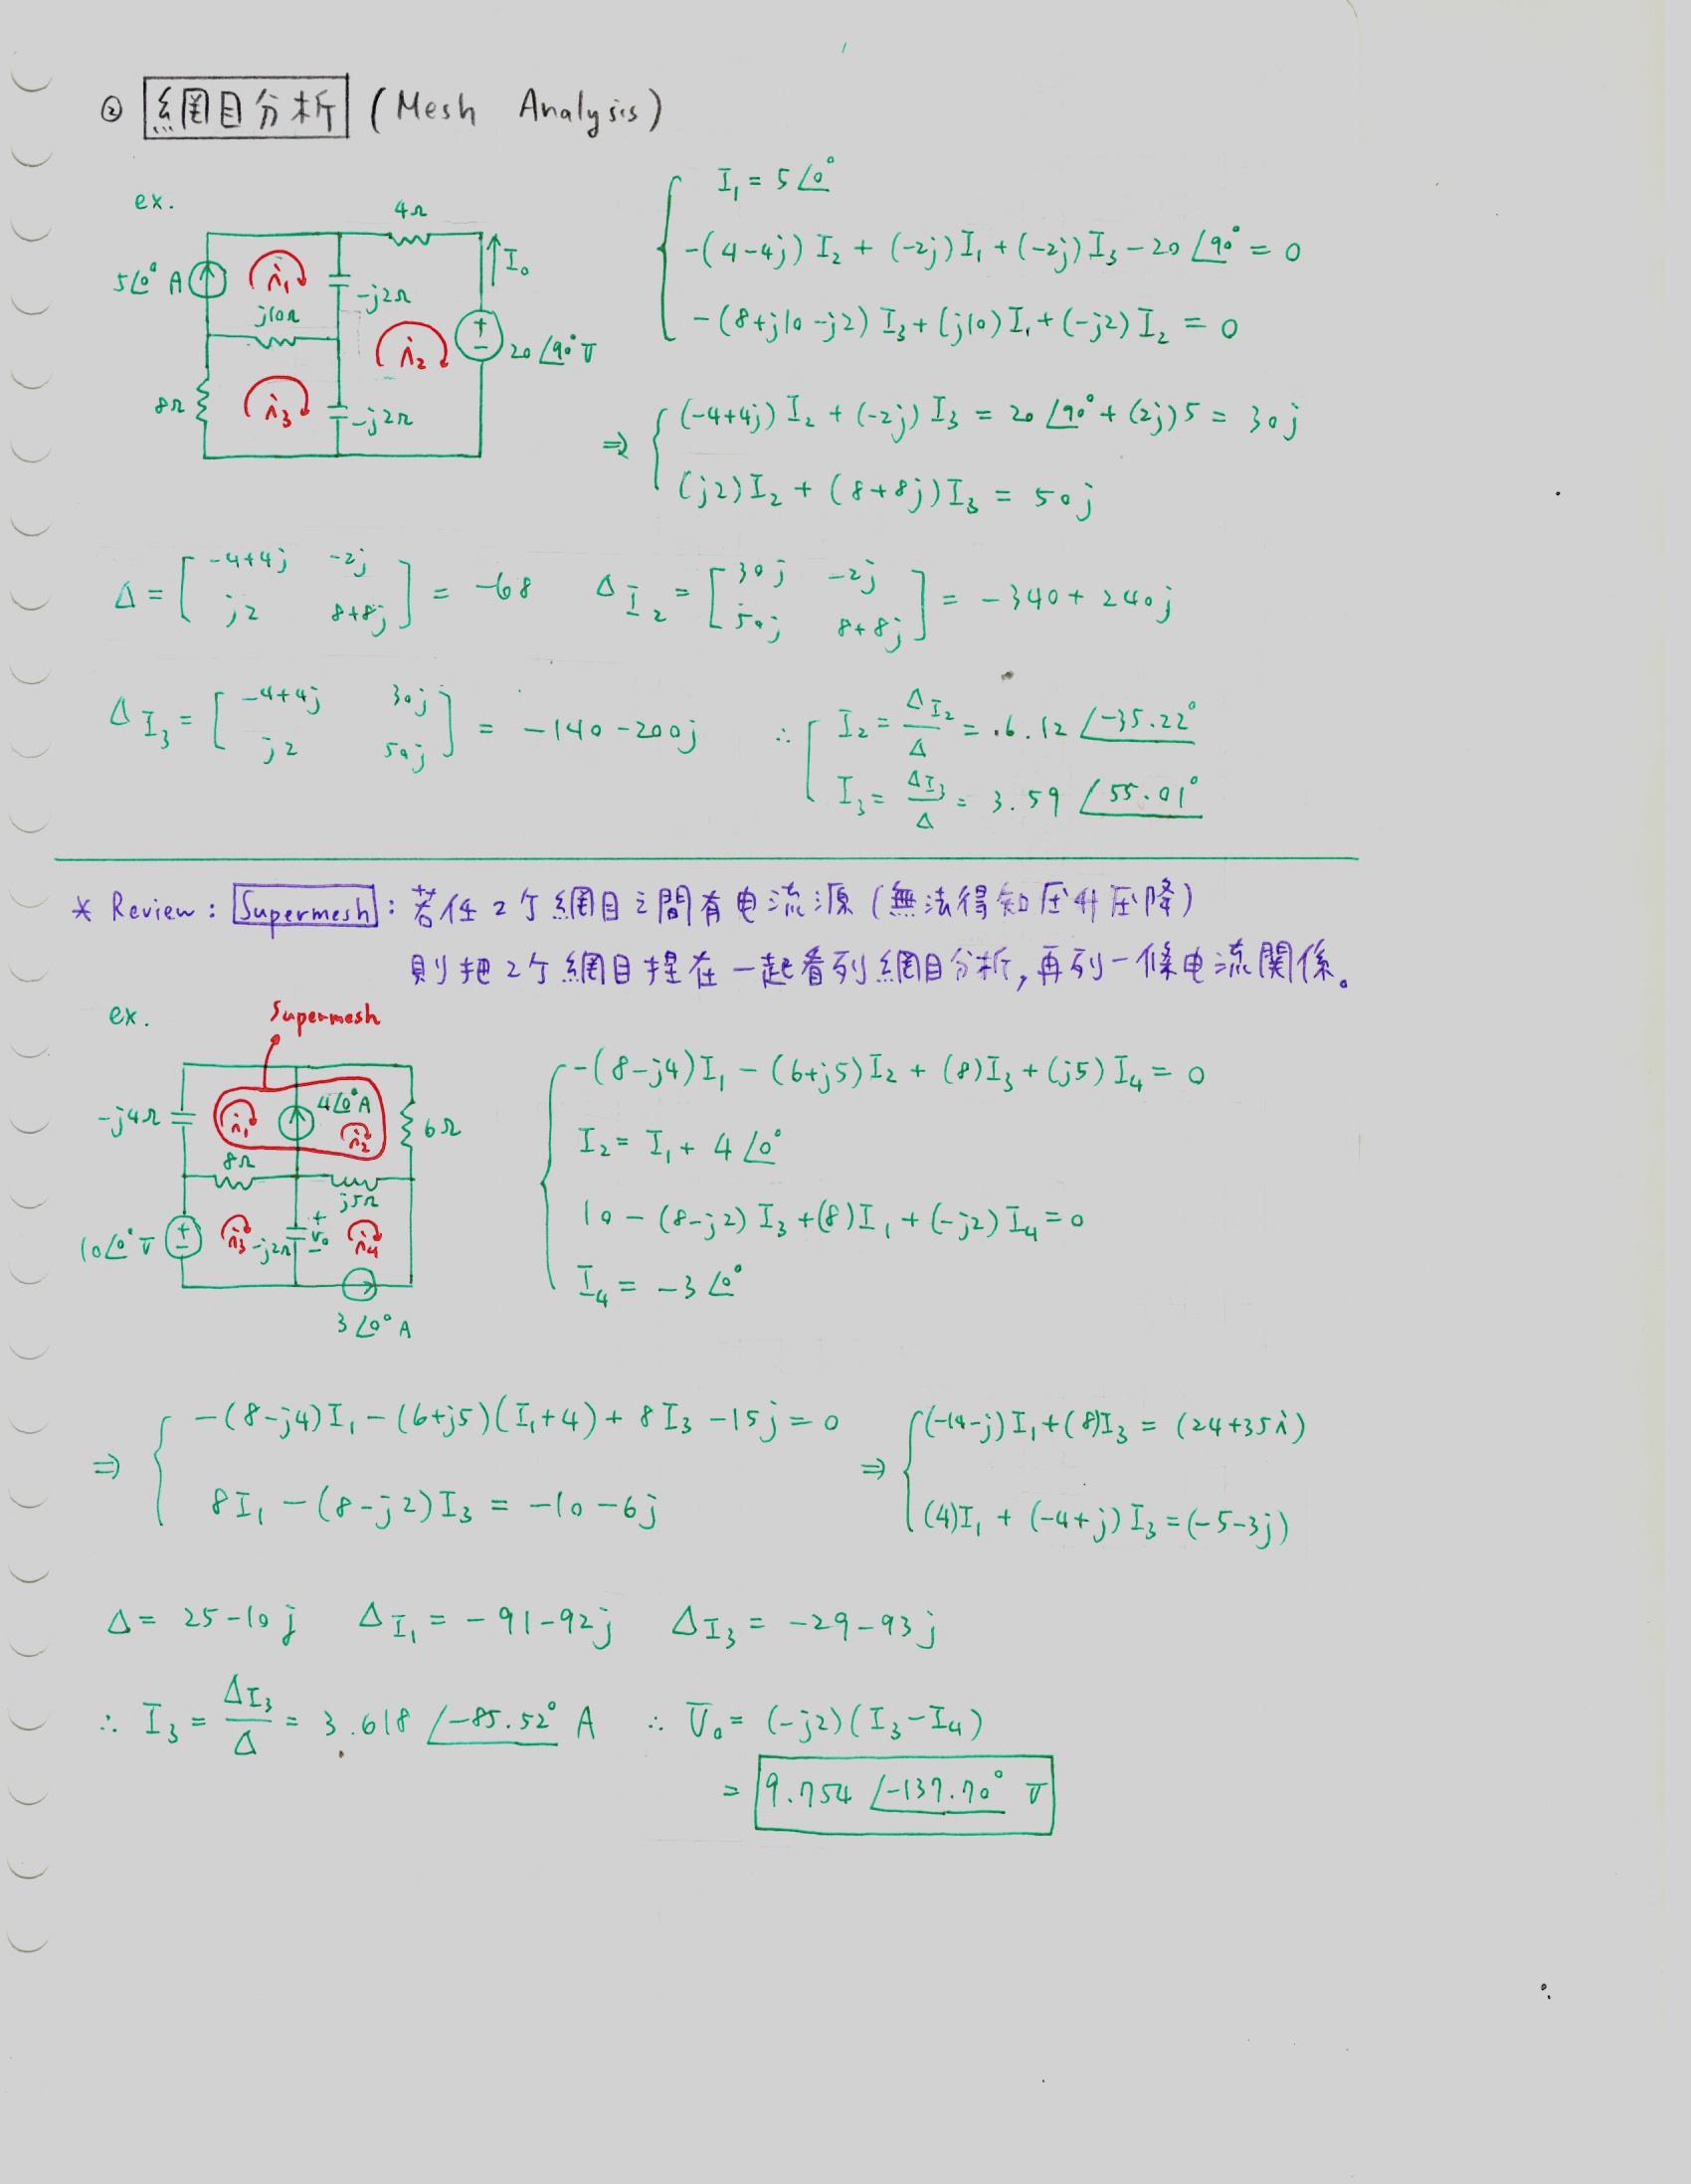 ② 網目分析 (Mesh Analysis)
ex.
4Ω
I₀
5∠0° A
i₁
-j2Ω
j10Ω
i₂
20∠90° V
8Ω
i₃
-j2Ω
I₁ = 5∠0°
-(4-4j) I₂ + (-2j) I₁ + (-2j) I₃ - 20∠90° = 0
-(8+j10-j2) I₃ + (j10) I₁ + (-j2) I₂ = 0
⇒ (-4+4j) I₂ + (-2j) I₃ = 20∠90° + (2j)5 = 30j
(j2)I₂ + (8+8j)I₃ = 50j
Δ = [-4+4j -2j
j2 8+8j] = -68
Δ I₂ = [30j -2j
50j 8+8j] = -340 + 240j
Δ I₃ = [-4+4j 30j
j2 50j] = -140 - 200j
∴ I₂ = ΔI₂/Δ = 6.12 ∠-35.22°
I₃ = ΔI₃/Δ = 3.59 ∠55.01°
* Review : Supermesh : 若任2个網目之間有电流源 (無法得知压升压降)
則把2个網目捏在一起看列網目分析, 再列一條电流関係。
ex.
Supermesh
-j4Ω
i₁
4∠0°A
i₂
6Ω
8Ω
j5Ω
10∠0° V
i₃
-j2Ω
+
V₀
-
i₄
3∠0° A
-(8-j4)I₁ - (6+j5)I₂ + (8)I₃ + (j5)I₄ = 0
I₂ = I₁ + 4∠0°
10 - (8-j2) I₃ + (8)I₁ + (-j2) I₄ = 0
I₄ = -3∠0°
⇒ -(8-j4)I₁ - (6+j5)(I₁+4) + 8I₃ - 15j = 0
8I₁ - (8-j2)I₃ = -10 - 6j
⇒ (-14-j)I₁ + (8)I₃ = (24+35i)
(4)I₁ + (-4+j)I₃ = (-5-3j)
Δ = 25-10j ΔI₁ = -91-92j ΔI₃ = -29-93j
∴ I₃ = ΔI₃/Δ = 3.618 ∠-85.52° A ∴ V₀ = (-j2)(I₃-I₄)
= 9.754 ∠-137.70° V